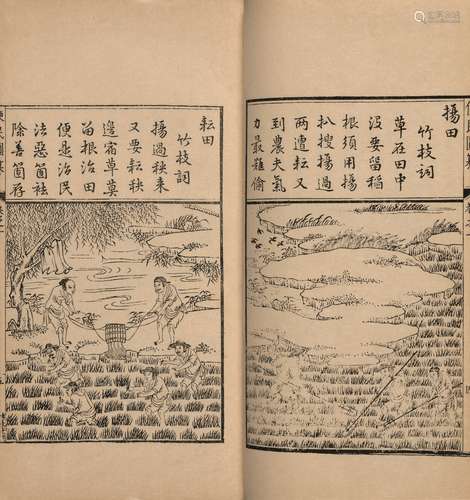 揚田
竹枝詞
草在田中
沒要留稻
根須用揚
扒搜揚過
兩遭耘又
到農夫氣
力最難偷
耘田
竹枝詞
揚過秧來
又要耘秧
邊宿草莫
留根治田
便是治民
法惡箇袪
除善箇存